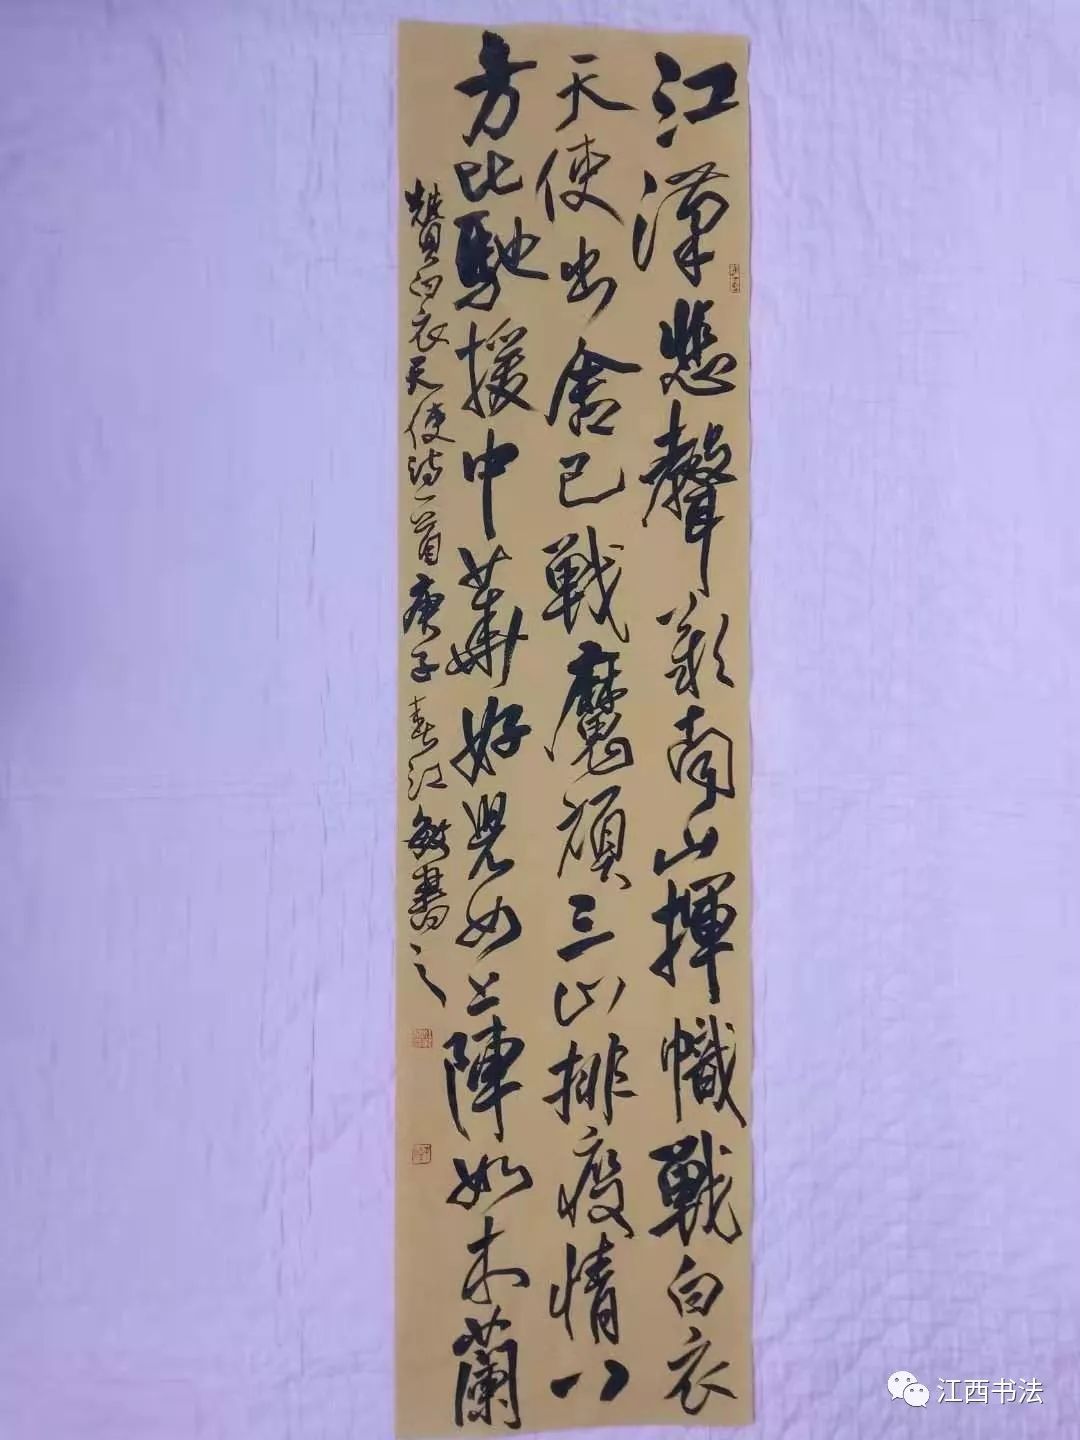 江漢悲聲歎南山揮幟戰白衣
天使出舍己戰魔頑三山排疫情八
方比馳援中華好兒女上陣如木蘭
贊白衣天使詩一首庚子春江敏書之
江西书法